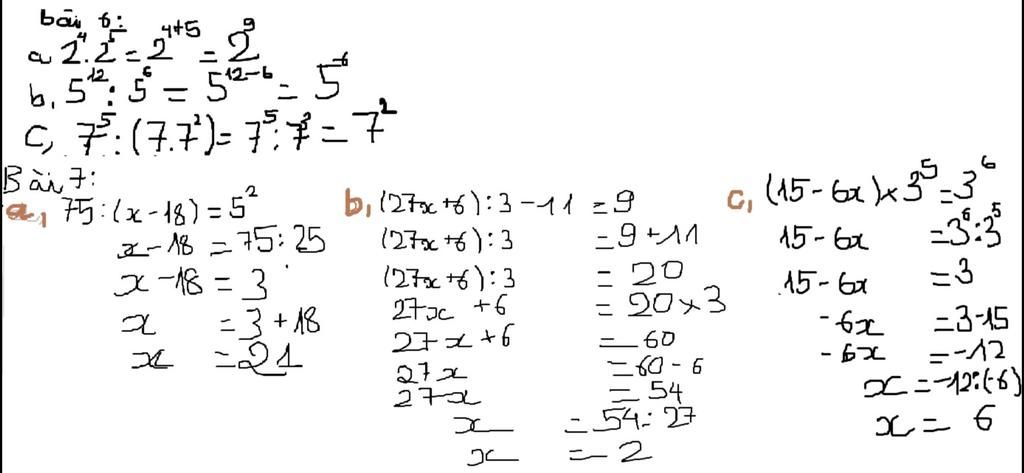 bài 6:
a 2⁴.2⁵=2⁴⁺⁵=2⁹
b, 5¹²:5⁶=5¹²⁻⁶=5⁻⁶
c, 7⁵:(7.7²)=7⁵:7³=7²
Bài 7:
a, 75:(x-18)=5²
x-18=75:25
x-18=3
x=3+18
x=21
b, (27x+6):3-11=9
(27x+6):3=9+11
(27x+6):3=20
27x+6=20×3
27x+6=60
27x=60-6
27x=54
x=54:27
x=2
c, (15-6x)×3⁵=3⁶
15-6x=3⁶:3⁵
15-6x=3
-6x=3-15
-6x=-12
x=-12:(-6)
x=6